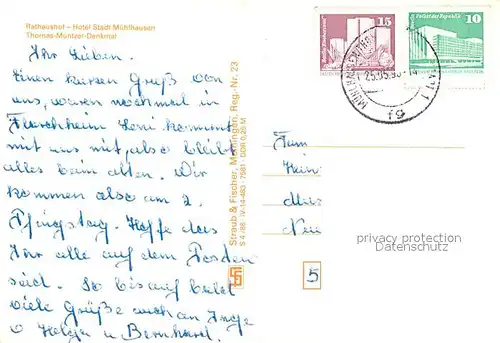 Rathaushof – Hotel Stadt Mühlhausen
Thomas-Müntzer-Denkmal
Ihr Lieben.
Einen kurzen Gruß von
uns, waren nochmal in
Flarchheim Leni kommt
mit uns mit, also bleibt
alles beim alten. Wir
kommen also am 2.
Pfingstag. Hoffe das
Ihr alle auf dem Posten
seid. So bis auf bald
viele Grüße auch an Inge
Helga u Bernhard.
Straub & Fischer, Meiningen, Reg.-Nr. 23
S 4/88 IV-14-483 7581 DDR 0,25 M
15
10
Palast der Republik
25.05.
fg
Fam
Hein
Neu
privacy protection
Datenschutz
5